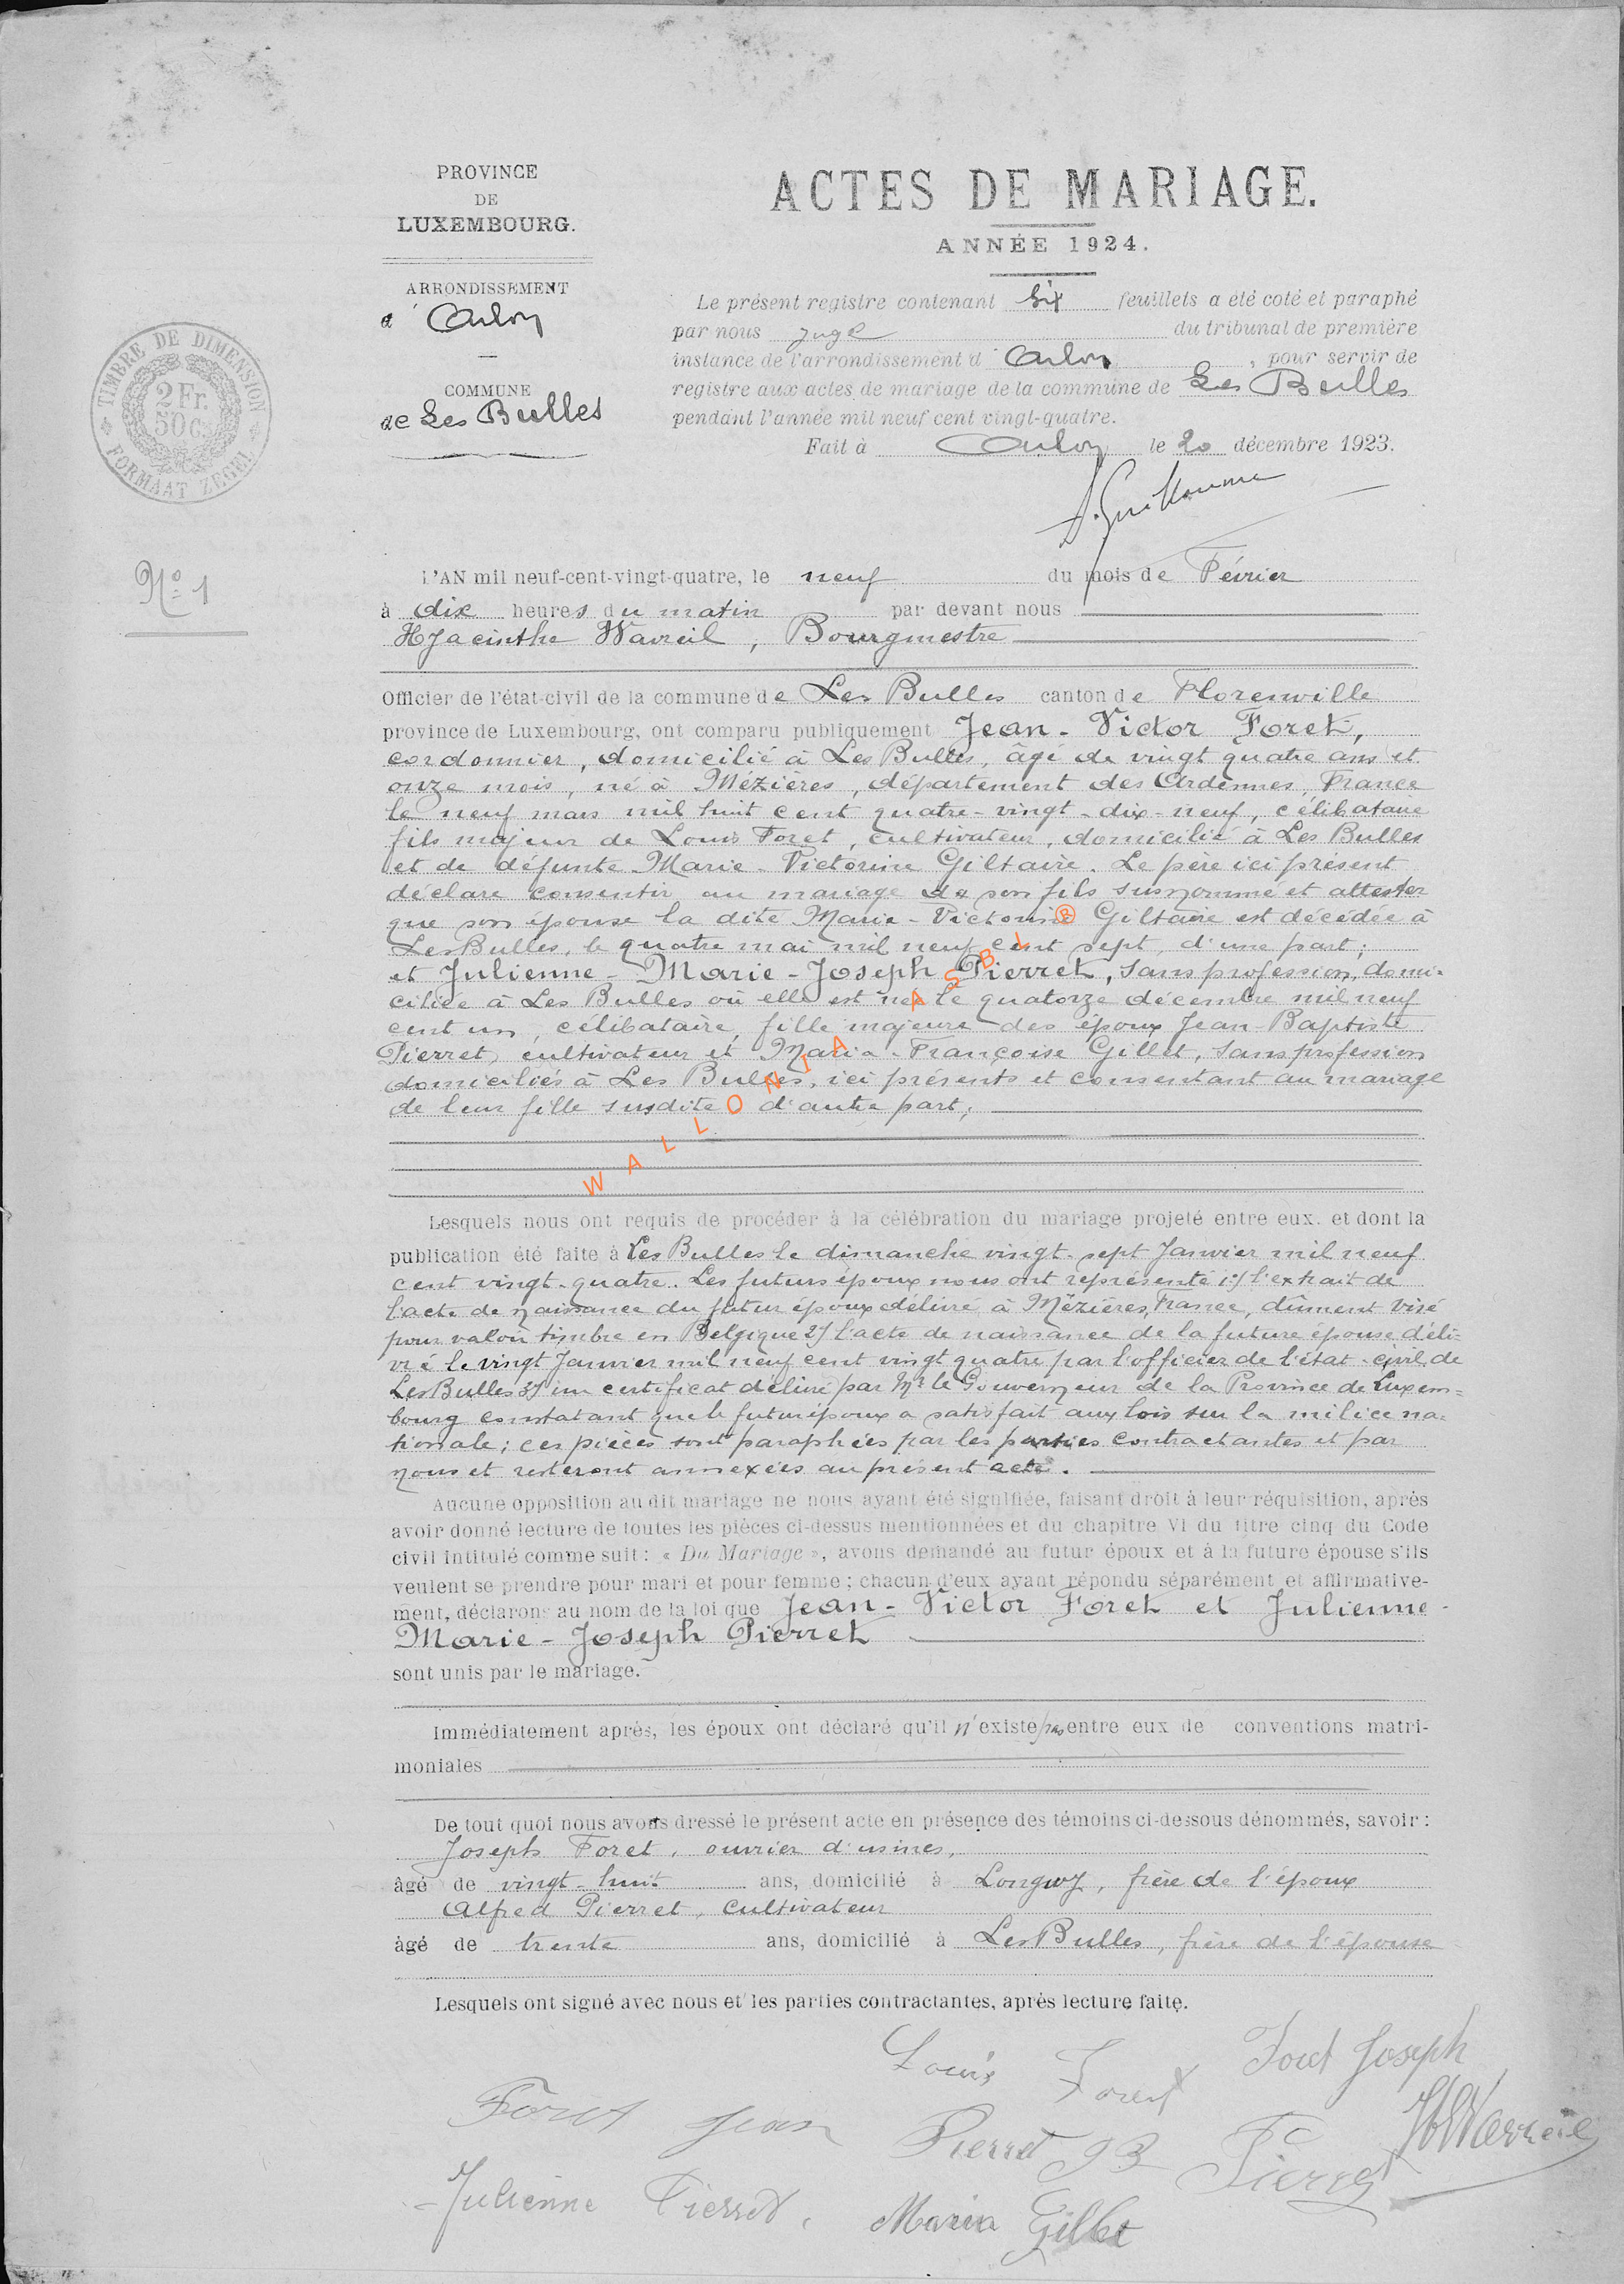 PROVINCE
DE
LUXEMBOURG.
ARRONDISSEMENT
d'Arlon
COMMUNE
de Les Bulles
TIMBRE DE DIMENSION
2 Fr.
50 C.
FORMAAT ZEGEL
ACTES DE MARIAGE.
ANNÉE 1924.
Le présent registre contenant six feuillets a été coté et paraphé
par nous juge du tribunal de première
instance de l'arrondissement d'Arlon, pour servir de
registre aux actes de mariage de la commune de Les Bulles
pendant l'année mil neuf cent vingt-quatre.
Fait à Arlon le 20 décembre 1923.
Guillaume
No. 1
L'AN mil neuf-cent-vingt-quatre, le neuf du mois de Février
à dix heures du matin par devant nous
Hyacinthe Wavreil, Bourgmestre
Officier de l'état-civil de la commune de Les Bulles canton de Florenville
province de Luxembourg, ont comparu publiquement Jean-Victor Foret,
cordonnier, domicilié à Les Bulles, âgé de vingt quatre ans et
onze mois, né à Mézières, département des Ardennes, France
le neuf mars mil huit cent quatre-vingt-dix-neuf, célibataire
fils majeur de Louis Foret, cultivateur, domicilié à Les Bulles
et de défunte Marie-Victorine Giltaire. Le père ici présent
déclare consentir au mariage de son fils susnommé et attester
que son épouse la dite Marie-Victorine Giltaire est décédée à
Les Bulles, le quatre mai mil neuf cent sept, d'une part;
et Julienne-Marie-Joseph Pierret, sans profession, domi-
ciliée à Les Bulles où elle est née le quatorze décembre mil neuf
cent un, célibataire, fille majeure des époux Jean-Baptiste
Pierret, cultivateur et Maria-Françoise Gillet, sans profession
domiciliés à Les Bulles, ici présents et consentant au mariage
de leur fille susdite d'autre part;
WALLONIA ASBL ®
Lesquels nous ont requis de procéder à la célébration du mariage projeté entre eux. et dont la
publication été faite à Les Bulles le dimanche vingt-sept Janvier mil neuf
cent vingt-quatre. Les futurs époux nous ont représenté 1°/ l'extrait de
l'acte de naissance du futur époux délivré à Mézières, France, dûment visé
pour valoir timbre en Belgique 2°/ l'acte de naissance de la future épouse déli-
vré le vingt Janvier mil neuf cent vingt quatre par l'officier de l'état-civil de
Les Bulles 3°/ un certificat délivré par Mr le Gouverneur de la Province de Luxem=
bourg constatant que le futur époux a satisfait aux lois sur la milice na=
tionale; ces pièces sont paraphées par les parties contractantes et par
nous et resteront annexées au présent acte.
Aucune opposition au dit mariage ne nous ayant été signifiée, faisant droit à leur réquisition, après
avoir donné lecture de toutes les pièces ci-dessus mentionnées et du chapitre VI du titre cinq du Code
civil intitulé comme suit: « Du Mariage », avons demandé au futur époux et à la future épouse s'ils
veulent se prendre pour mari et pour femme; chacun d'eux ayant répondu séparément et affirmative-
ment, déclarons au nom de la loi que Jean-Victor Foret et Julienne-
Marie-Joseph Pierret
sont unis par le mariage.
Immédiatement après, les époux ont déclaré qu'il n'existe pas entre eux de conventions matri-
moniales
De tout quoi nous avons dressé le présent acte en présence des témoins ci-dessous dénommés, savoir:
Joseph Foret, ouvrier d'usines,
âgé de vingt-huit ans, domicilié à Longwy, frère de l'époux
Alfred Pierret, cultivateur
âgé de trente ans, domicilié à Les Bulles, frère de l'épouse
Lesquels ont signé avec nous et les parties contractantes, après lecture faite.
Louis Foret Foret Joseph
Foret Jean Pierret JB Pierret H Wavreil
Julienne Pierret. Maria Gillet